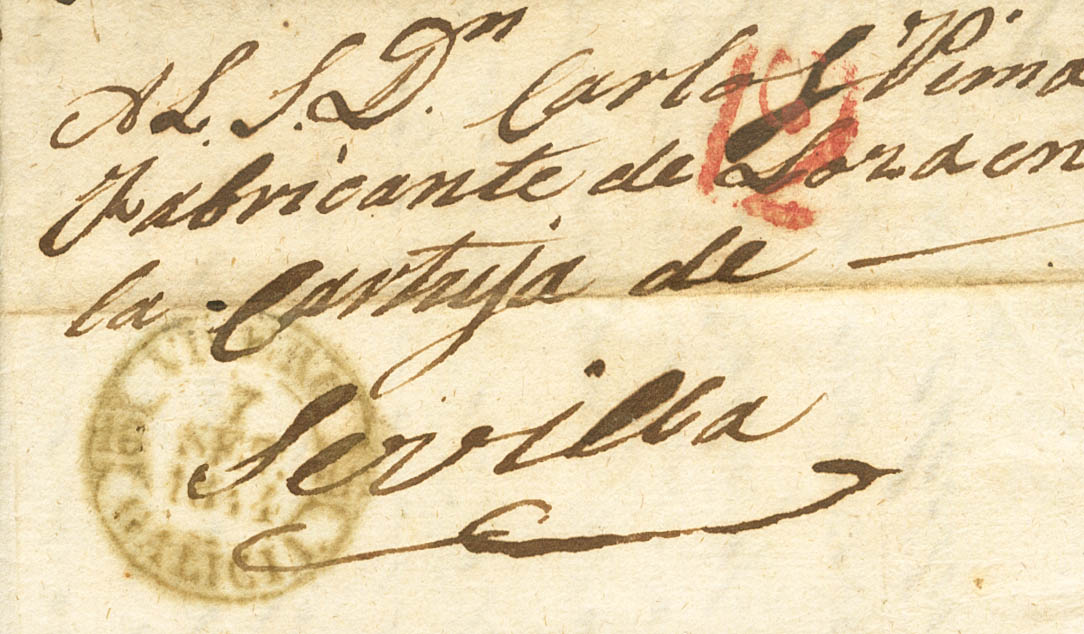 AL. S. Dn. Carlo Pima
Fabricante de Loza en
la Cartuja de
Sevilla
GALICIA.